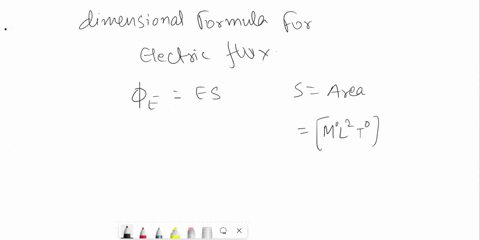 dimensional formula for
Electric flux
ϕ_E = ES S = Area
= [M⁰L²T⁰]